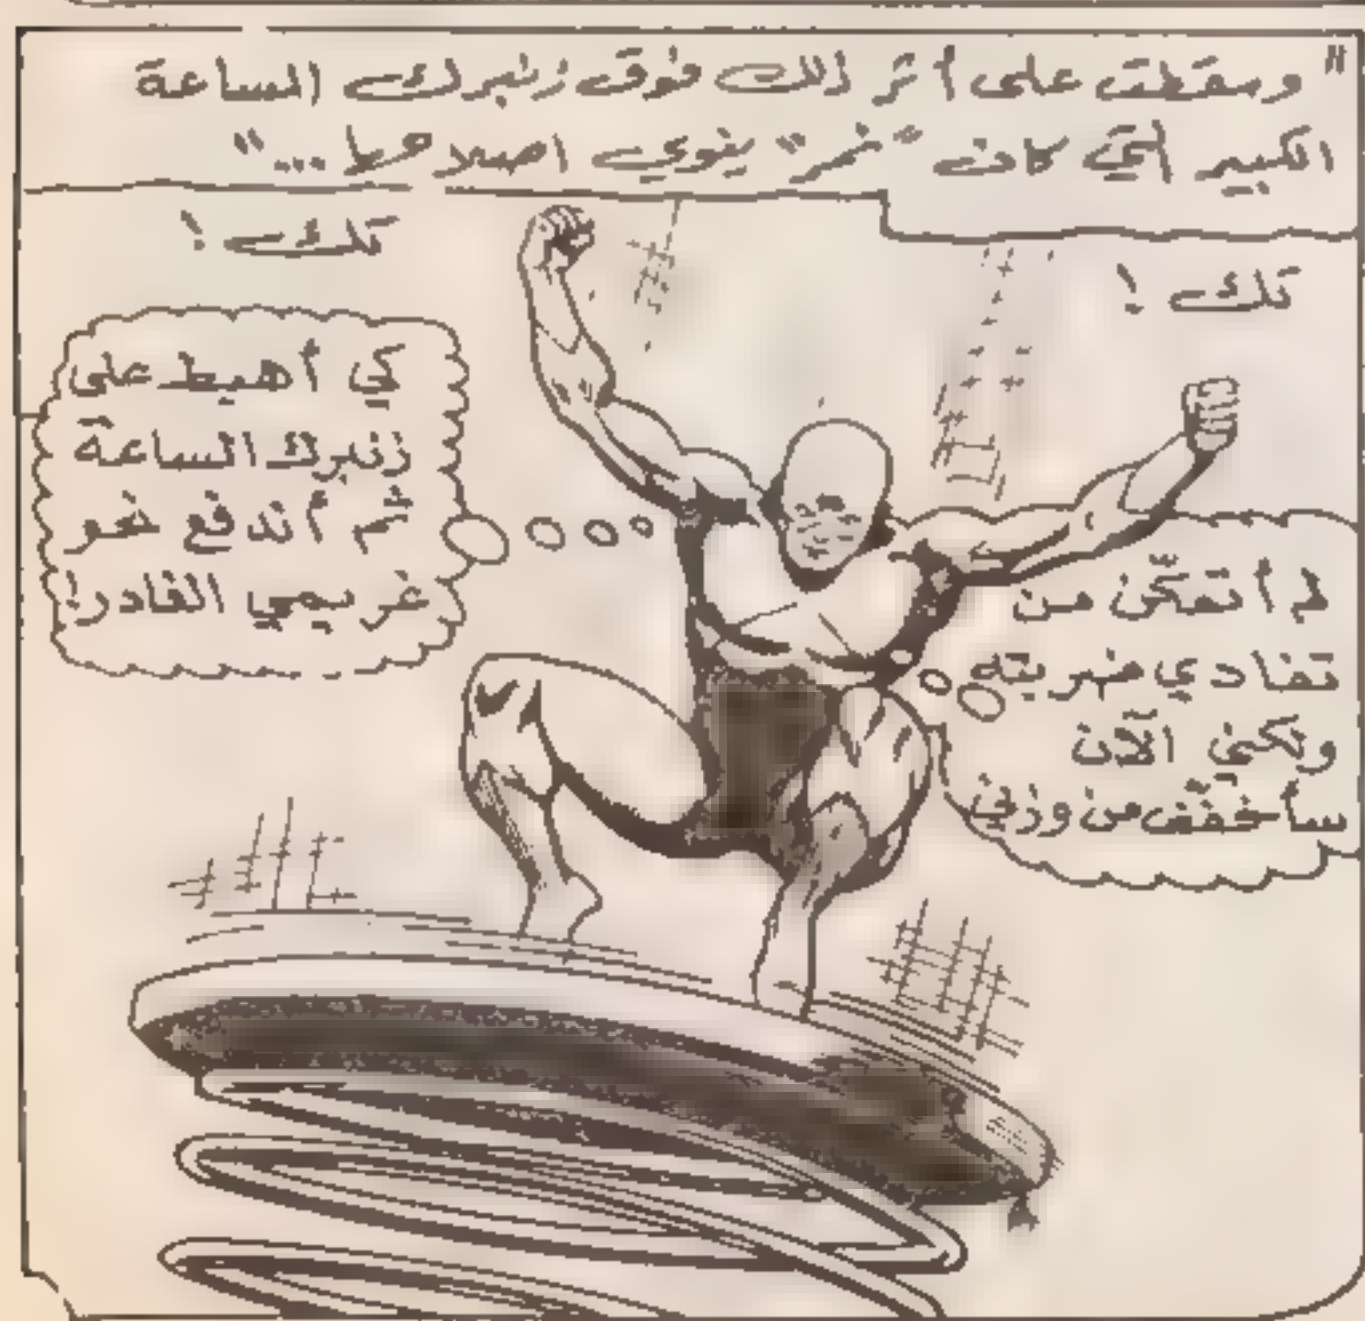 " وسقطت على أثر ذلك فوق زنبرك الساعة
الكبير التي كان "نمر" ينوي اصلاحها ..."
تك !
تك !
لم أتمكّن من
تفادي ضربته
ولكني الآن
سأخفّف من وزني
كي أهبط على
زنبرك الساعة
ثم أندفع نحو
غريمي الغادر!